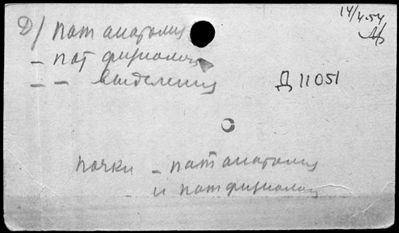 14/X-54
Д) пат анатомия
- пат физиология
- - выделения
Д 11051
почки - пат анатомия
и пат физиология